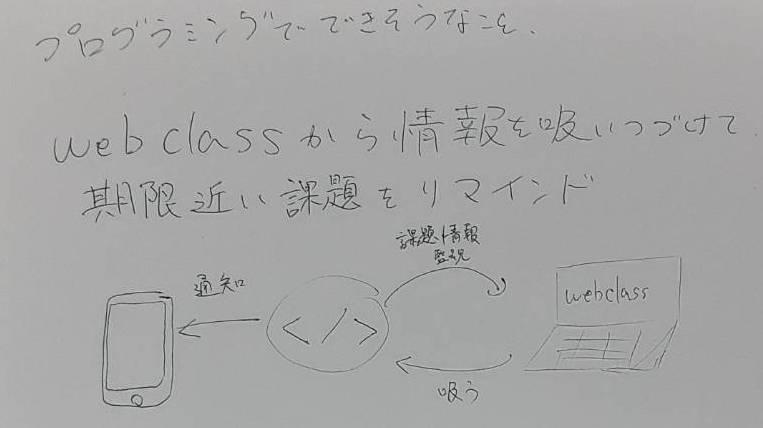 プログラミングでできそうなこと、
webclassから情報を吸いつづけて
期限近い課題をリマインド
課題情報
監視
通知
</>
webclass
吸う